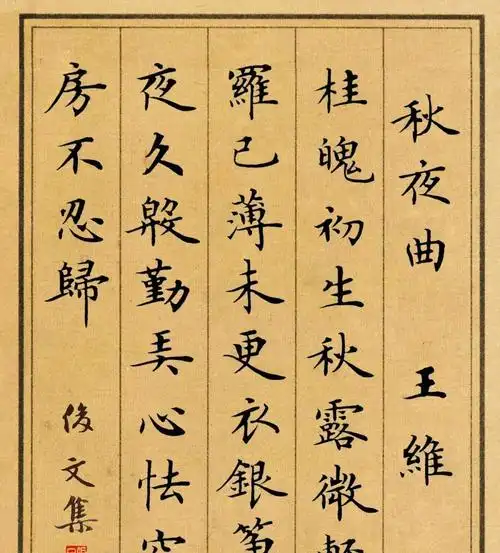 秋夜曲 王維
桂魄初生秋露微輕
羅已薄未更衣銀箏
夜久殷勤弄心怯空
房不忍歸
俊文集